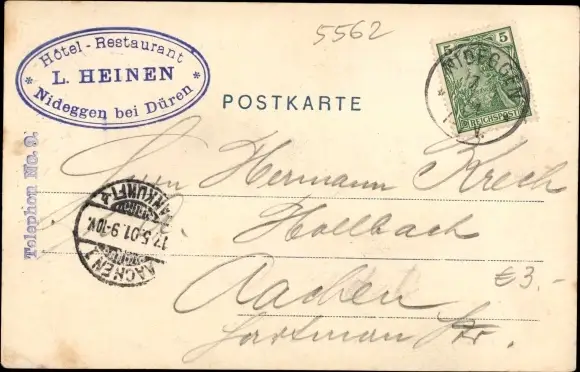 5562
Hôtel-Restaurant
L. HEINEN
* Nideggen bei Düren *
Telephon No. 9.
POSTKARTE
5 5
REICHSPOST
NIDEGGEN
Herrn Hermann Krech
Hollbach
Aachen
Hartman Str.
€3.-
AACHEN 1
17.5.01.9-10V.
ANKUNFT